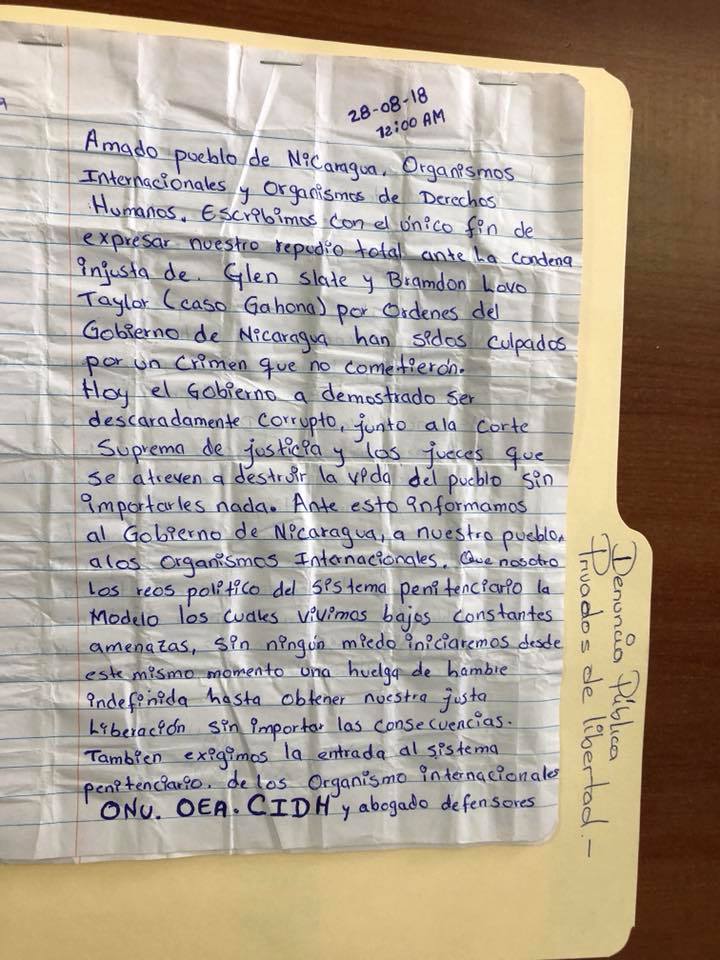 28-08-18
12:00 AM
Amado pueblo de Nicaragua, Organismos
Internacionales y Organismos de Derechos
Humanos. Escribimos con el único fin de
expresar nuestro repudio total ante La condena
injusta de. Glen slate y Bramdon Lovo
Taylor (caso Gahona) por Ordenes del
Gobierno de Nicaragua han sidos culpados
por un Crimen que no cometierón.
Hoy el Gobierno a demostrado ser
descaradamente corrupto, junto ala corte
Suprema de justicia y los jueces que
se atreven a destruir la vida del pueblo sin
importarles nada. Ante esto informamos
al Gobierno de Nicaragua, a nuestro pueblo,
alos Organismos Internacionales. Que nosotro
Los reos politico del sistema penitenciario la
Modelo los cuales vivimos bajos constantes
amenazas, sin ningún miedo iniciaremos desde
este mismo momento una huelga de hambre
indefinida hasta obtener nuestra justa
Liberación sin importar las consecuencias.
Tambien exigimos la entrada al sistema
penitenciario. de los Organismo internacionales
ONU. OEA. CIDH y abogado defensores
Denuncia Pública
Privados de libertad.-